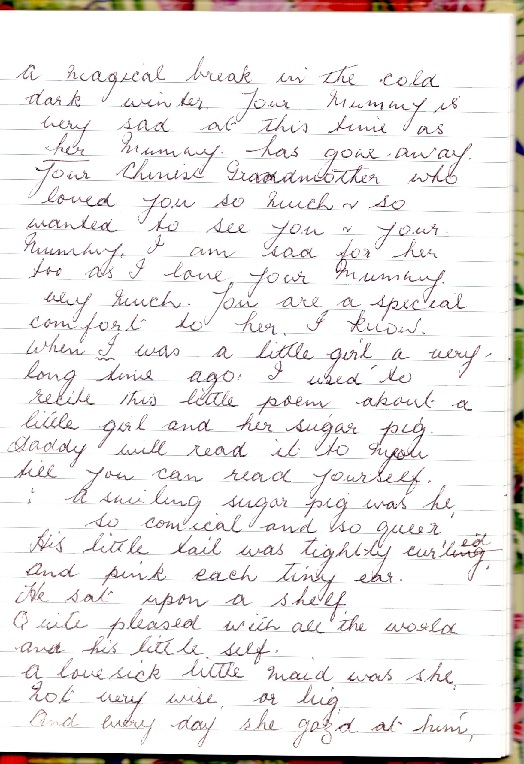 a magical break in the cold
dark winter. Your Mummy is
very sad at this time as
her Mummy. has gone away.
Your Chinese Grandmother who
loved you so much & so
wanted to see you & your
Mummy. I am sad for her
too as I love your Mummy.
very much. You are a special
comfort to her. I know.
When I was a little girl a very
long time ago. I used to
recite this little poem about a
little girl and her sugar pig.
Daddy will read it to you
till you can read yourself.
: a smiling sugar pig was he,
so comical and so queer
His little tail was tightly curled,
and pink each tiny ear.
He sat upon a shelf,
Quite pleased with all the world
and his little self.
a lovesick little maid was she,
Not very wise, or big
And every day she gazd at him,